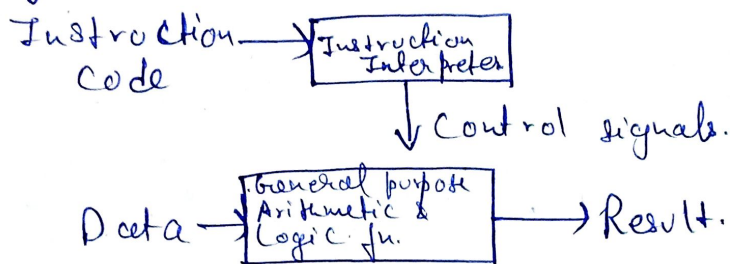 Instruction
Code
Instruction
Interpreter
Control signals.
General purpose
Arithmetic &
Logic fn.
Data
Result.